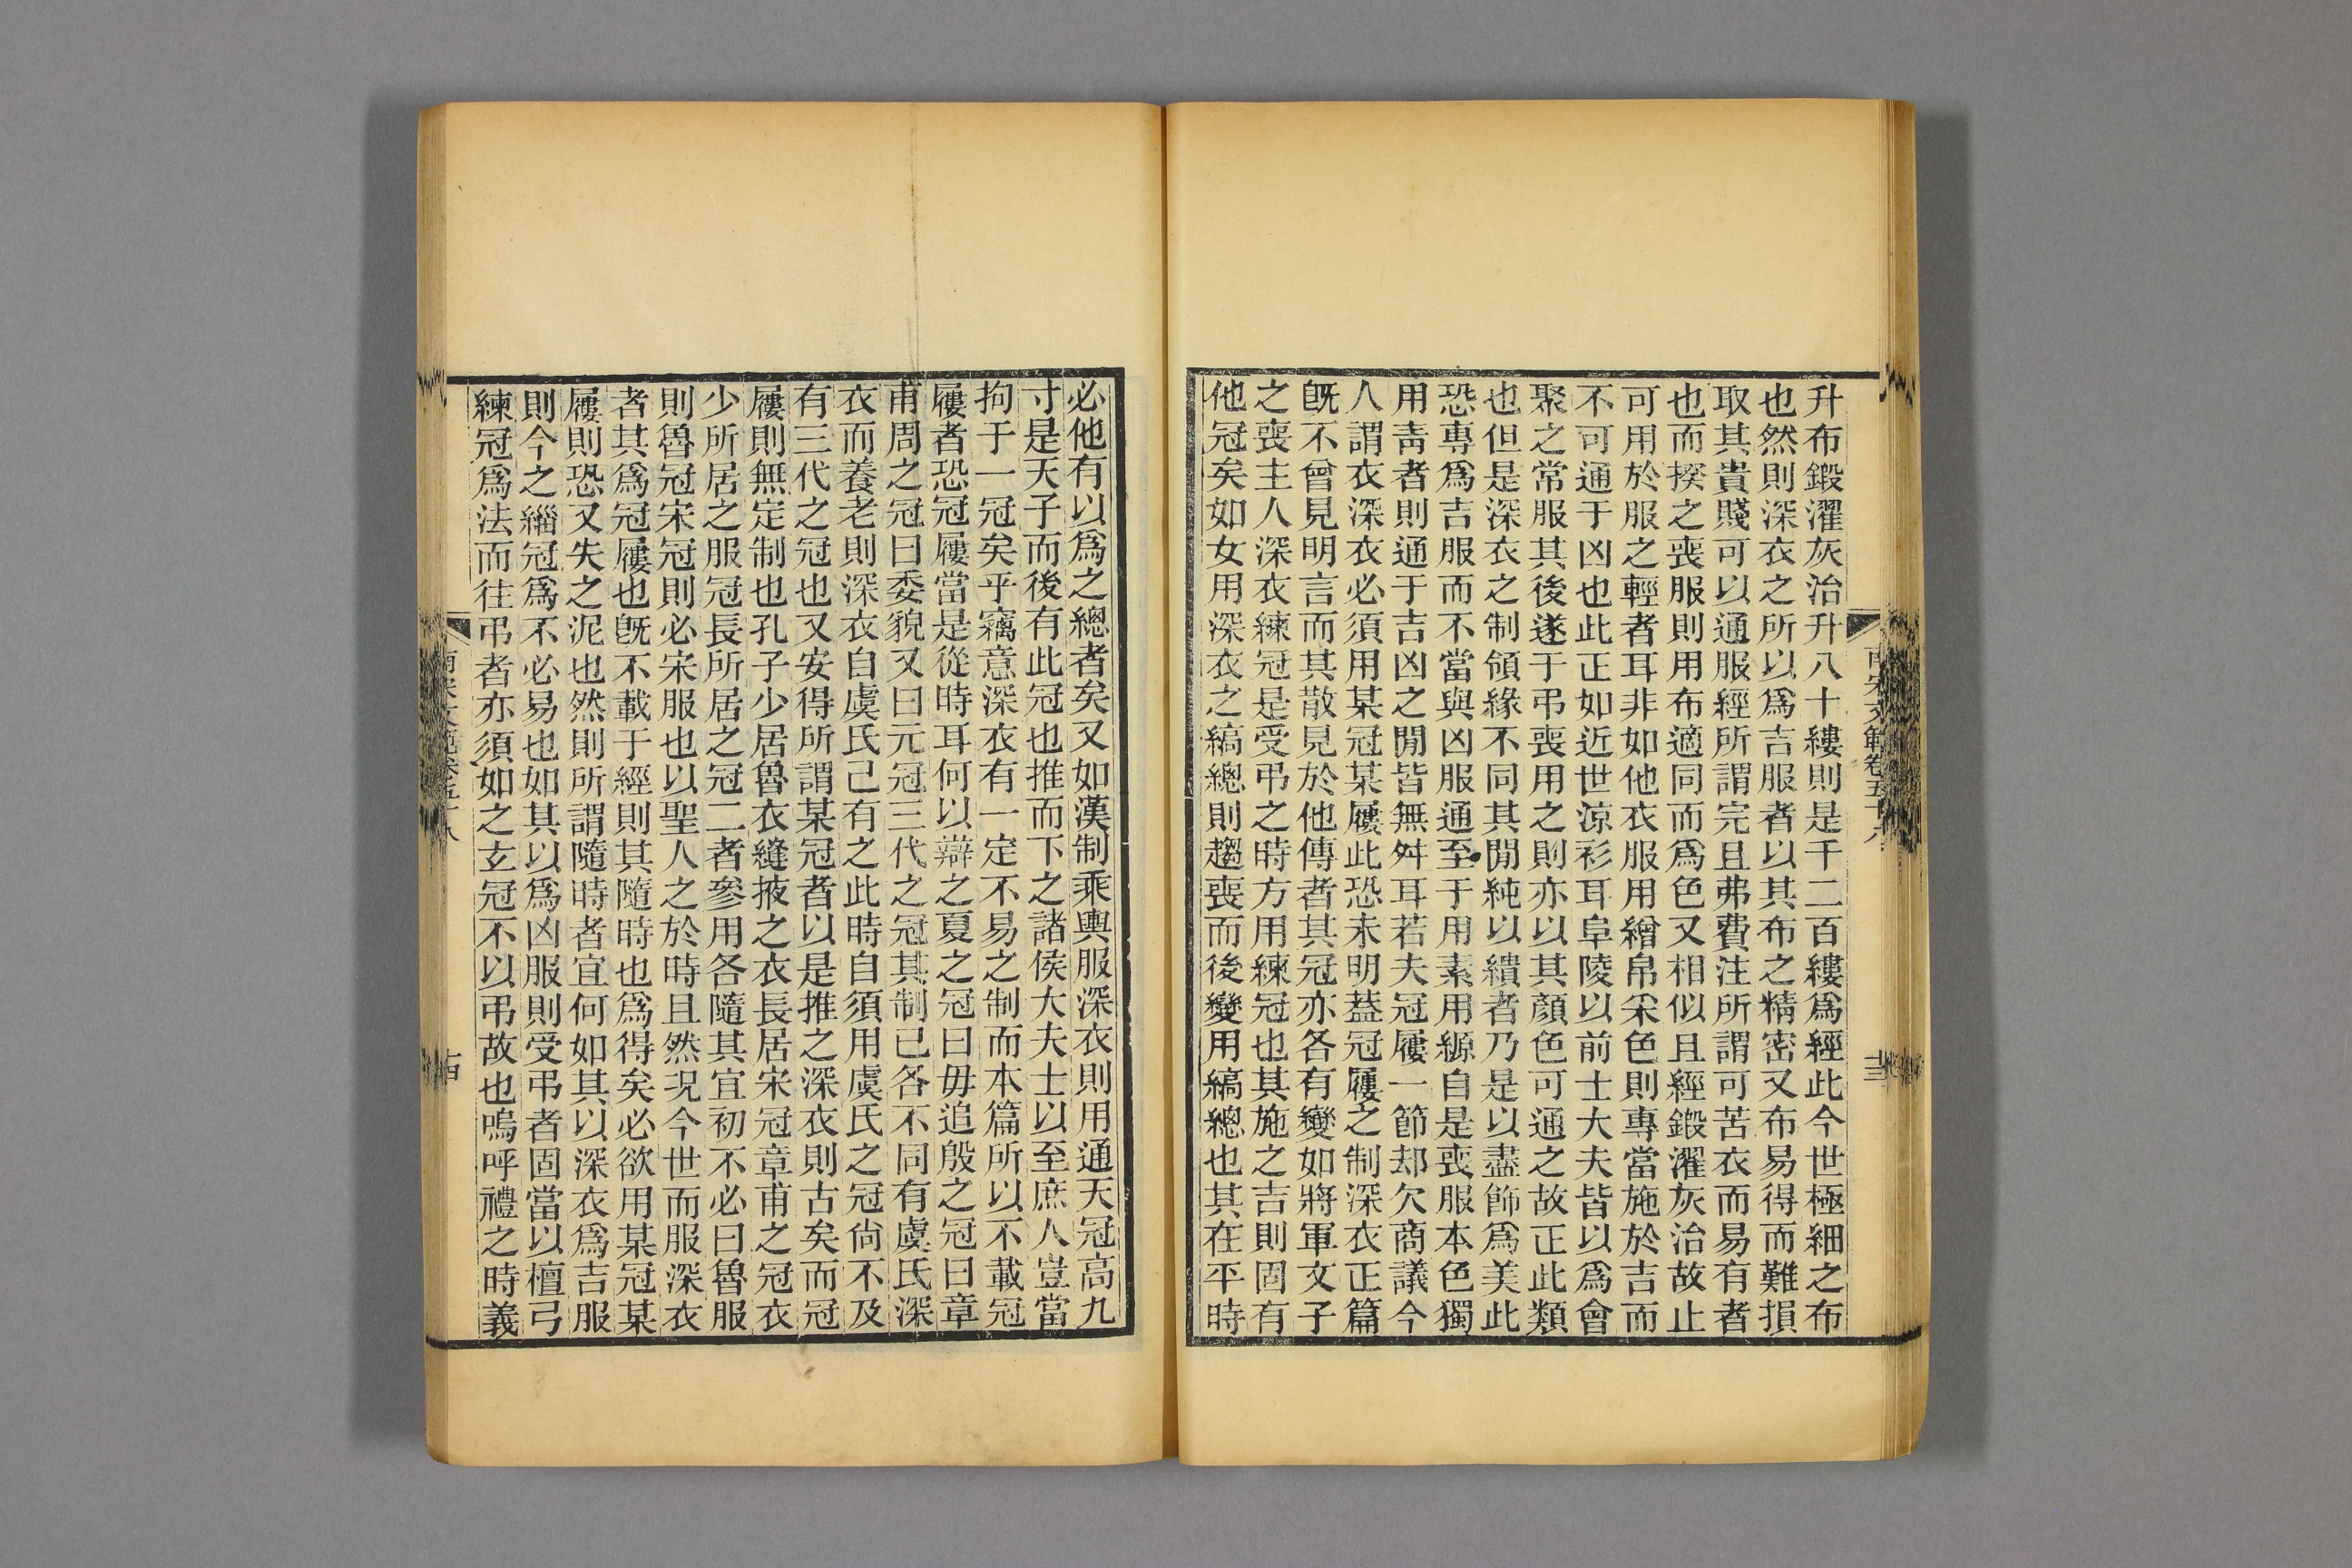 升布鍛濯灰治升八十縷則是千二百縷爲經此今世極細之布
也然則深衣之所以爲吉服者以其布之精密又布易得而難損
取其貴賤可以通服經所謂完且弗費注所謂可苦衣而易有者
也而揆之喪服則用布適同而爲色又相似且經鍛濯灰治故止
可用於服之輕者耳非如他衣服用繒帛采色則專當施於吉而
不可通于凶也此正如近世涼衫耳阜陵以前士大夫皆以爲會
聚之常服其後遂于弔喪用之則亦以其顏色可通之故正此類
也但是深衣之制領緣不同其閒純以繢者乃是以盡飾爲美此
恐專爲吉服而不當與凶服通至于用素用縓自是喪服本色獨
用靑者則通于吉凶之閒皆無舛耳若夫冠屨一節却欠商議今
人謂衣深衣必須用某冠某屨此恐未明蓋冠屨之制深衣正篇
旣不曾見明言而其散見於他傳者其冠亦各有變如將軍文子
之喪主人深衣練冠是受弔之時方用練冠也其施之吉則固有
他冠矣如女用深衣之縞總則趨喪而後變用縞總也其在平時
南宋文範卷五十八
十三
必他有以爲之總者矣又如漢制乘輿服深衣則用通天冠高九
寸是天子而後有此冠也推而下之諸侯大夫士以至庶人豈當
拘于一冠矣乎竊意深衣有一定不易之制而本篇所以不載冠
屨者恐冠屨當是從時耳何以辯之夏之冠曰毋追殷之冠曰章
甫周之冠曰委貌又曰元冠三代之冠其制已各不同有虞氏深
衣而養老則深衣自虞氏已有之此時自須用虞氏之冠尙不及
有三代之冠也又安得所謂某冠者以是推之深衣則古矣而冠
屨則無定制也孔子少居魯衣縫掖之衣長居宋冠章甫之冠衣
少所居之服冠長所居之冠二者參用各隨其宜初不必曰魯服
則魯冠宋冠則必宋服也以聖人之於時且然况今世而服深衣
者其爲冠屨也旣不載于經則其隨時也爲得矣必欲用某冠某
屨則恐又失之泥也然則所謂隨時者宜何如其以深衣爲吉服
則今之緇冠爲不必易也如其以爲凶服則受弔者固當以檀弓
練冠爲法而往弔者亦須如之玄冠不以弔故也嗚呼禮之時義
南宋文範卷五十八
十四